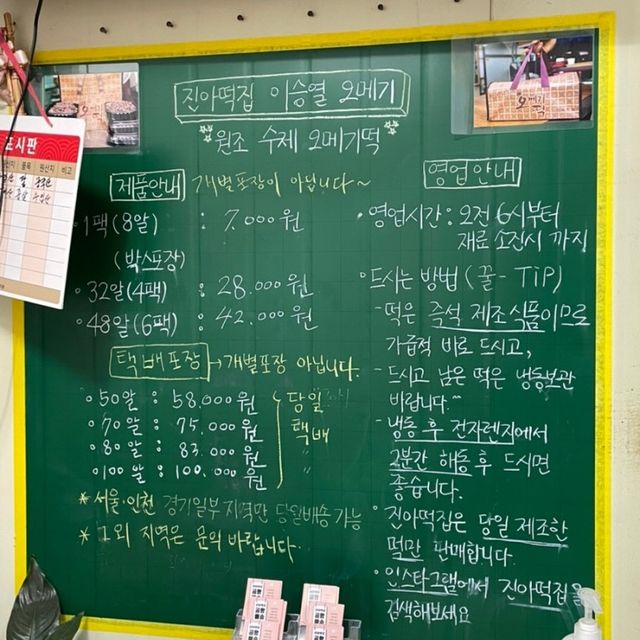 진아떡집 이승열 오메기
원조 수제 오메기떡
제품안내 개별포장이 아닙니다~
· 1팩(8알) : 7.000원
(박스포장)
· 32알(4팩) : 28.000원
· 48알(6팩) : 42.000원
택배포장 → 개별포장 아닙니다.
∘ 50알 : 58.000원
∘ 70알 : 75.000원
∘ 80알 : 83.000원
∘ 100알 : 100.000원
당일
택배
〃
* 서울·인천 경기일부 지역만 당일배송 가능
* 그 외 지역은 문의 바랍니다.
영업안내
· 영업시간 : 오전 6시부터
재료 소진시 까지
∘ 드시는 방법 (꿀-TiP)
- 떡은 즉석 제조식품이므로
가급적 바로 드시고,
- 드시고 남은 떡은 냉동보관
바랍니다.^^
- 냉동 후 전자렌지에서
2분간 해동 후 드시면
좋습니다.
∘ 진아떡집은 당일 제조한
떡만 판매합니다.
∘ 인스타그램에서 진아떡집을
검색해보세요
오메기
떡
표시판
품목 원산지 비고